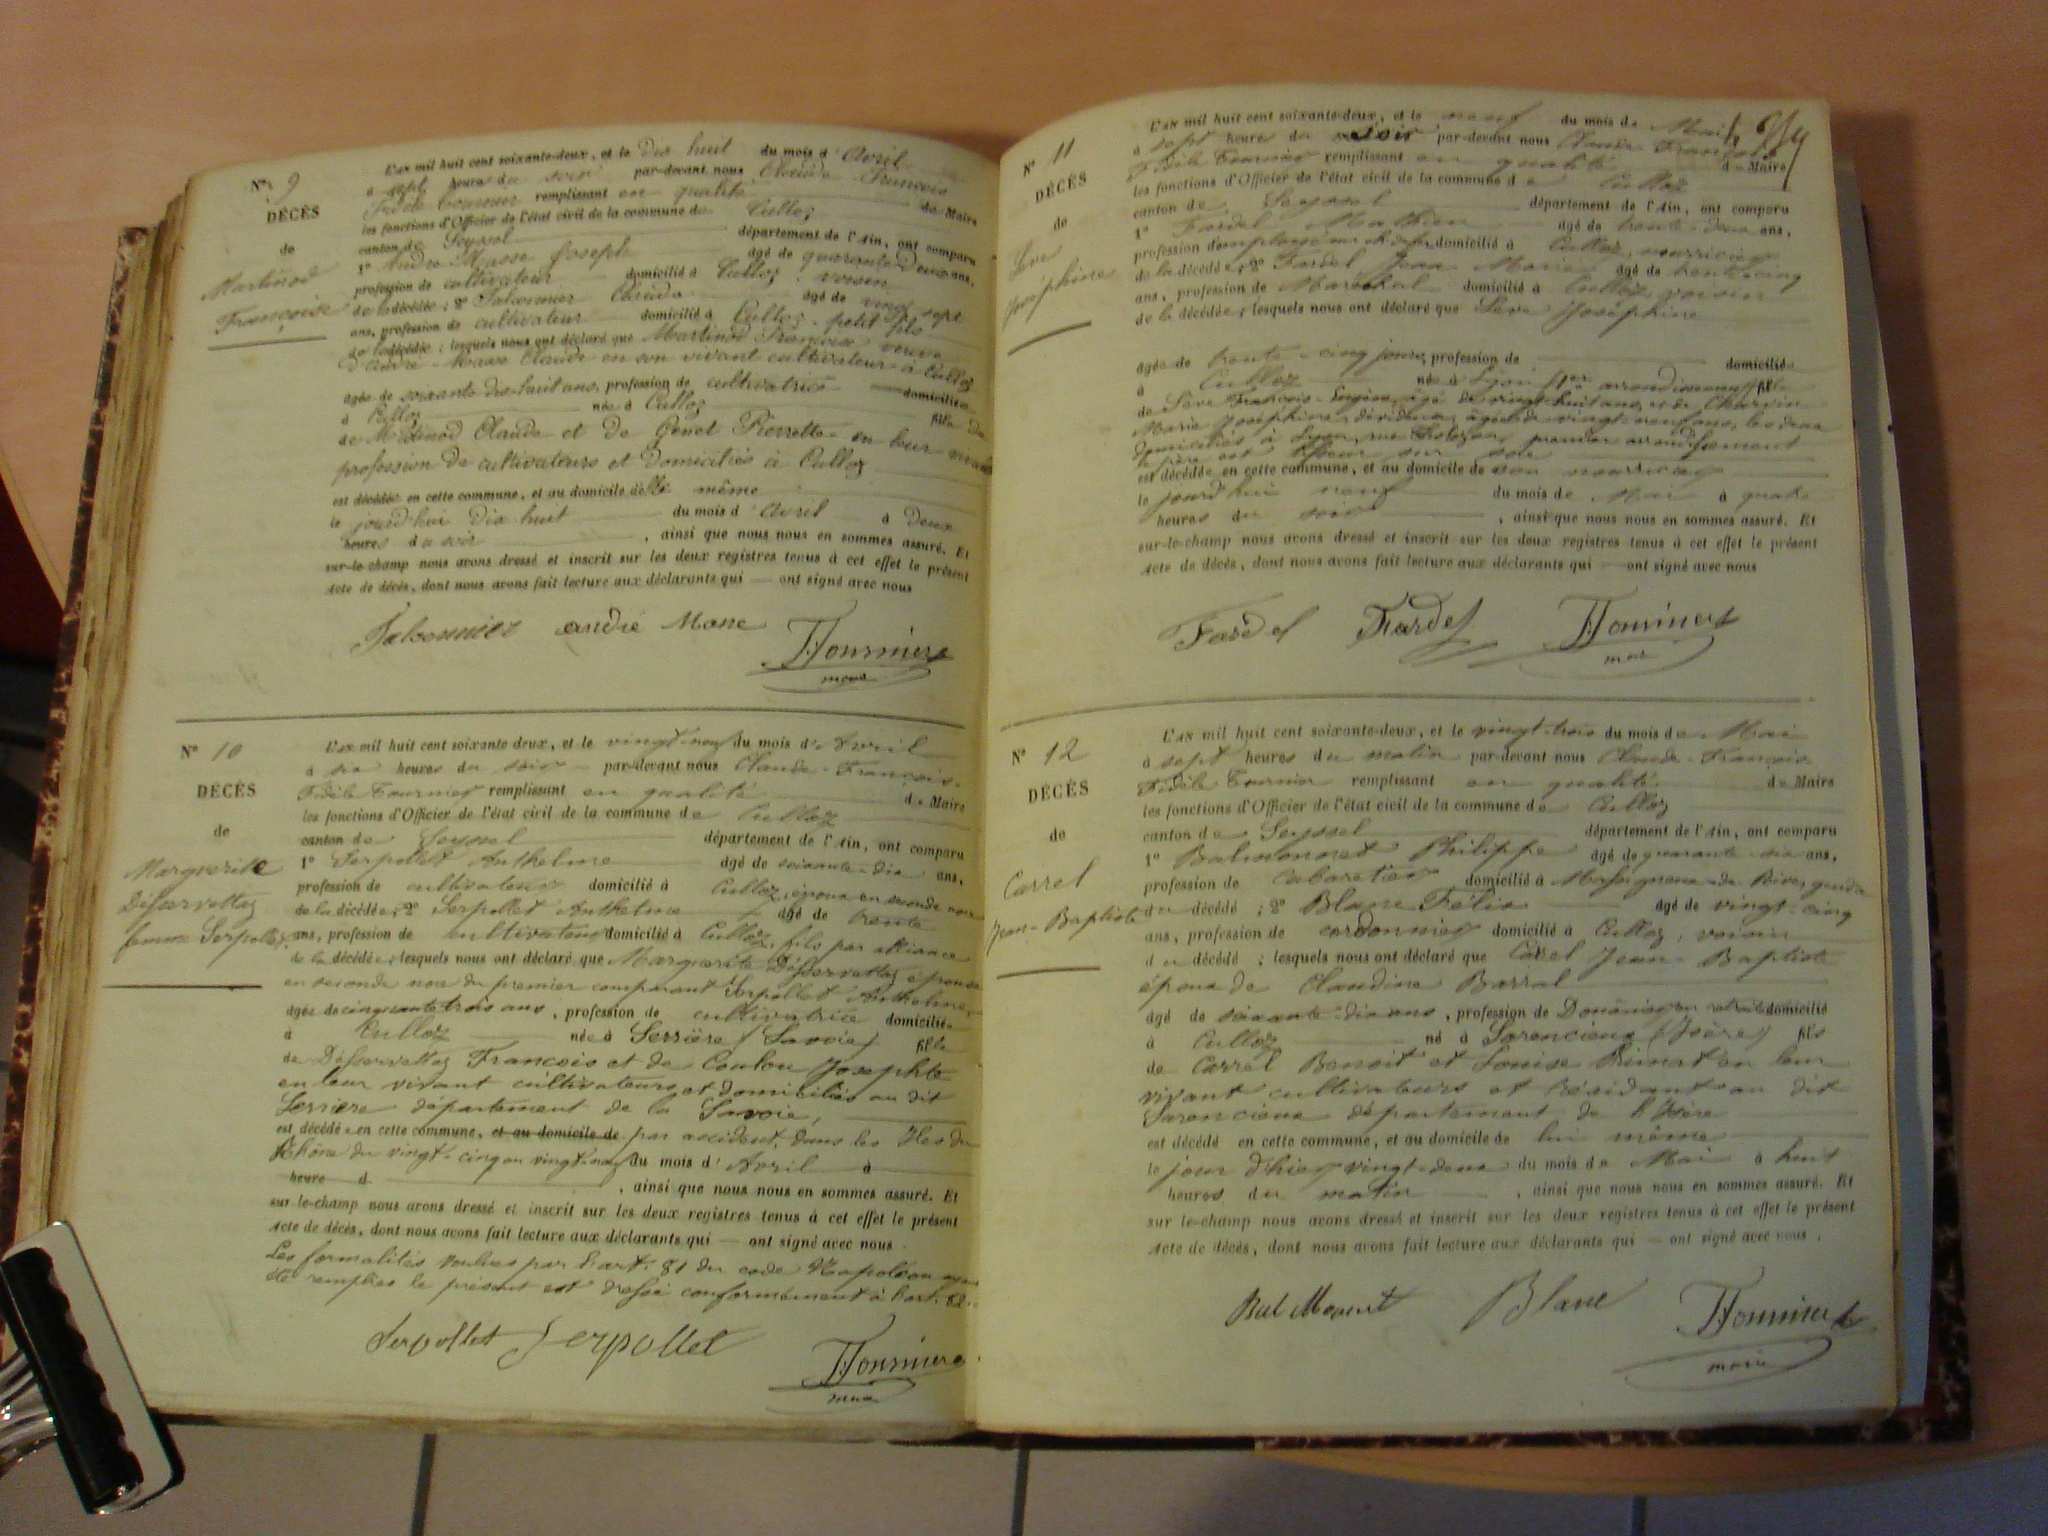 N° 9
DÉCÈS
de
Martinod
Françoise
L'AN mil huit cent soixante-deux, et le dix huit du mois d'Avril
à sept heures du soir par-devant nous Claude François
Fidèle Fournier remplissant en qualité de Maire
les fonctions d'Officier de l'état civil de la commune de Culloz
canton de Seyssel département de l'Ain, ont comparu
1° André Masse Joseph âgé de quarante deux ans,
profession de cultivateur domicilié à Culloz, voisin
de la décédée; 2° Falconnier Claude âgé de vingt sept
ans, profession de cultivateur domicilié à Culloz, petit fils
de la décédée; lesquels nous ont déclaré que Martinod Françoise veuve
d'André-Masse Claude en son vivant cultivateur à Culloz
agée de soixante dix huit ans, profession de cultivatrice domiciliée
à Culloz née à Culloz fille de
de Martinod Claude et de Genet Pierrette en leur vivant
profession de cultivateurs et domiciliés à Culloz
est décédée en cette commune, et au domicile d'elle même
le jourd'hui dix huit du mois d'Avril à deux
heures du soir, ainsi que nous nous en sommes assuré. Et
sur-le-champ nous avons dressé et inscrit sur les deux registres tenus à cet effet le présent
Acte de décès, dont nous avons fait lecture aux déclarants qui — ont signé avec nous
Falconnier andré Masse FFournier
maire
N° 10
DÉCÈS
de
Marguerite
Déservettaz
femme Serpollet
L'AN mil huit cent soixante-deux, et le vingt-neuf du mois d'Avril
à six heures du soir par-devant nous Claude-François-
Fidèle Fournier remplissant en qualité de Maire
les fonctions d'Officier de l'état civil de la commune de Culloz
canton de Seyssel département de l'Ain, ont comparu
1° Serpollet Anthelme âgé de soixante-dix ans,
profession de cultivateur domicilié à Culloz, époux en seconde noce
de la décédée; 2° Serpollet Anthelme âgé de trente
ans, profession de cultivateur domicilié à Culloz, fils par alliance
de la décédée; lesquels nous ont déclaré que Marguerite Déservettaz épouse
en seconde noce du premier comparant Serpollet Anthelme,
agée de cinquante trois ans, profession de cultivatrice domiciliée
à Culloz née à Serrière (Savoie) fille
de Déservettaz François et de Coulou Josephte
en leur vivant cultivateurs et domiciliés au dit
Serrière département de la Savoie,
est décédée en cette commune, et au domicile de par accident, dans les Iles du
Rhône du vingt-cinq au vingt-neuf du mois d'Avril à
heure d, ainsi que nous nous en sommes assuré. Et
sur-le-champ nous avons dressé et inscrit sur les deux registres tenus à cet effet le présent
Acte de décès, dont nous avons fait lecture aux déclarants qui — ont signé avec nous.
Les formalités voulues par l'art. 81 du code Napoléon ayant
été remplies le présent est dressé conformément à l'art. 82.
Serpollet Serpollet FFournier
maire
N° 11
DÉCÈS
de
Seve
Joséphine
L'AN mil huit cent soixante-deux, et le neuf du mois de Mai
à sept heure du soir par-devant nous Claude François
Fidèle Fournier remplissant en qualité de Maire
les fonctions d'Officier de l'état civil de la commune de Culloz
canton de Seyssel département de l'Ain, ont comparu
1° Fardel Mathieu âgé de trente-deux ans,
profession d'employé au ch. de fer domicilié à Culloz, nourricier
de la décédée; 2° Fardel Jean Marie âgé de trente cinq
ans, profession de Maréchal domicilié à Culloz, voisin
de la décédée; lesquels nous ont déclaré que Seve Joséphine
agée de trente-cinq jours, profession de domiciliée
à Culloz née à Lyon (1er arrondissement) fille
de Seve François-Eugène, âgé de vingt-huit ans, et de Charvin
Marie Joséphine, dévideuse, âgée de vingt-neuf ans, les deux
domiciliés à Lyon, rue premier arrondissement
le père est tisseur sur soie
est décédée en cette commune, et au domicile de son nourricier
le jourd'hui neuf du mois de Mai à quatre
heures du soir, ainsi que nous nous en sommes assuré. Et
sur-le-champ nous avons dressé et inscrit sur les deux registres tenus à cet effet le présent
Acte de décès, dont nous avons fait lecture aux déclarants qui — ont signé avec nous
Fardel Fardel FFournier
maire
N° 12
DÉCÈS
de
Carrel
Jean-Baptiste
L'AN mil huit cent soixante-deux, et le vingt-trois du mois de Mai
à sept heures du matin par-devant nous Claude-François
Fidèle Fournier remplissant en qualité de Maire
les fonctions d'Officier de l'état civil de la commune de Culloz
canton de Seyssel département de l'Ain, ont comparu
1° Balmonnet Philippe âgé de quarante-six ans,
profession de Cabaretier domicilié à Massignieu-de-Rive, gendre
du décédé; 2° Blanc Félix âgé de vingt-cinq
ans, profession de cordonnier domicilié à Culloz, voisin
du décédé; lesquels nous ont déclaré que Carrel Jean-Baptiste
époux de Claudine Barral
âgé de soixante-dix ans, profession de Douanier en retraite domicilié
à Culloz né à Sarencieux (Isère) fils
de Carrel Benoit et Louise Primat en leur
vivant cultivateurs et résidant au dit
Sarencieux département de l'Isère
est décédé en cette commune, et au domicile de lui même
le jour d'hier vingt-deux du mois de Mai à huit
heures du matin, ainsi que nous nous en sommes assuré. Et
sur-le-champ nous avons dressé et inscrit sur les deux registres tenus à cet effet le présent
Acte de décès, dont nous avons fait lecture aux déclarants qui — ont signé avec nous.
Balmonnet Blanc FFournier
maire